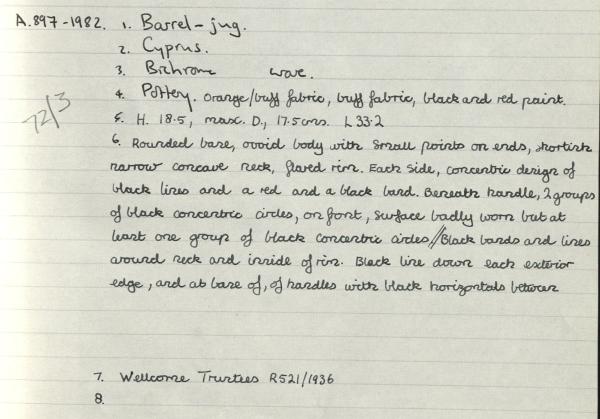 A.897-1982. 1. Barrel-jug.
2. Cyprus.
3. Bichrome ware.
72/3
4. Pottery. Orange/buff fabric, buff fabric, black and red paint.
5. H. 18.5, max. D., 17.5cms. L 33.2
6. Rounded base, ovoid body with small points on ends, shortish
narrow concave neck, flared rim. Each side, concentric design of
black lines and a red and a black band. Beneath handle, 2 groups
of black concentric circles, on front, surface badly worn but at
least one group of black concentric circles // Black bands and lines
around neck and inside of rim. Black line down each exterior
edge, and at base of, of handles with black horizontals between
7. Wellcome Trustees R521/1936
8.